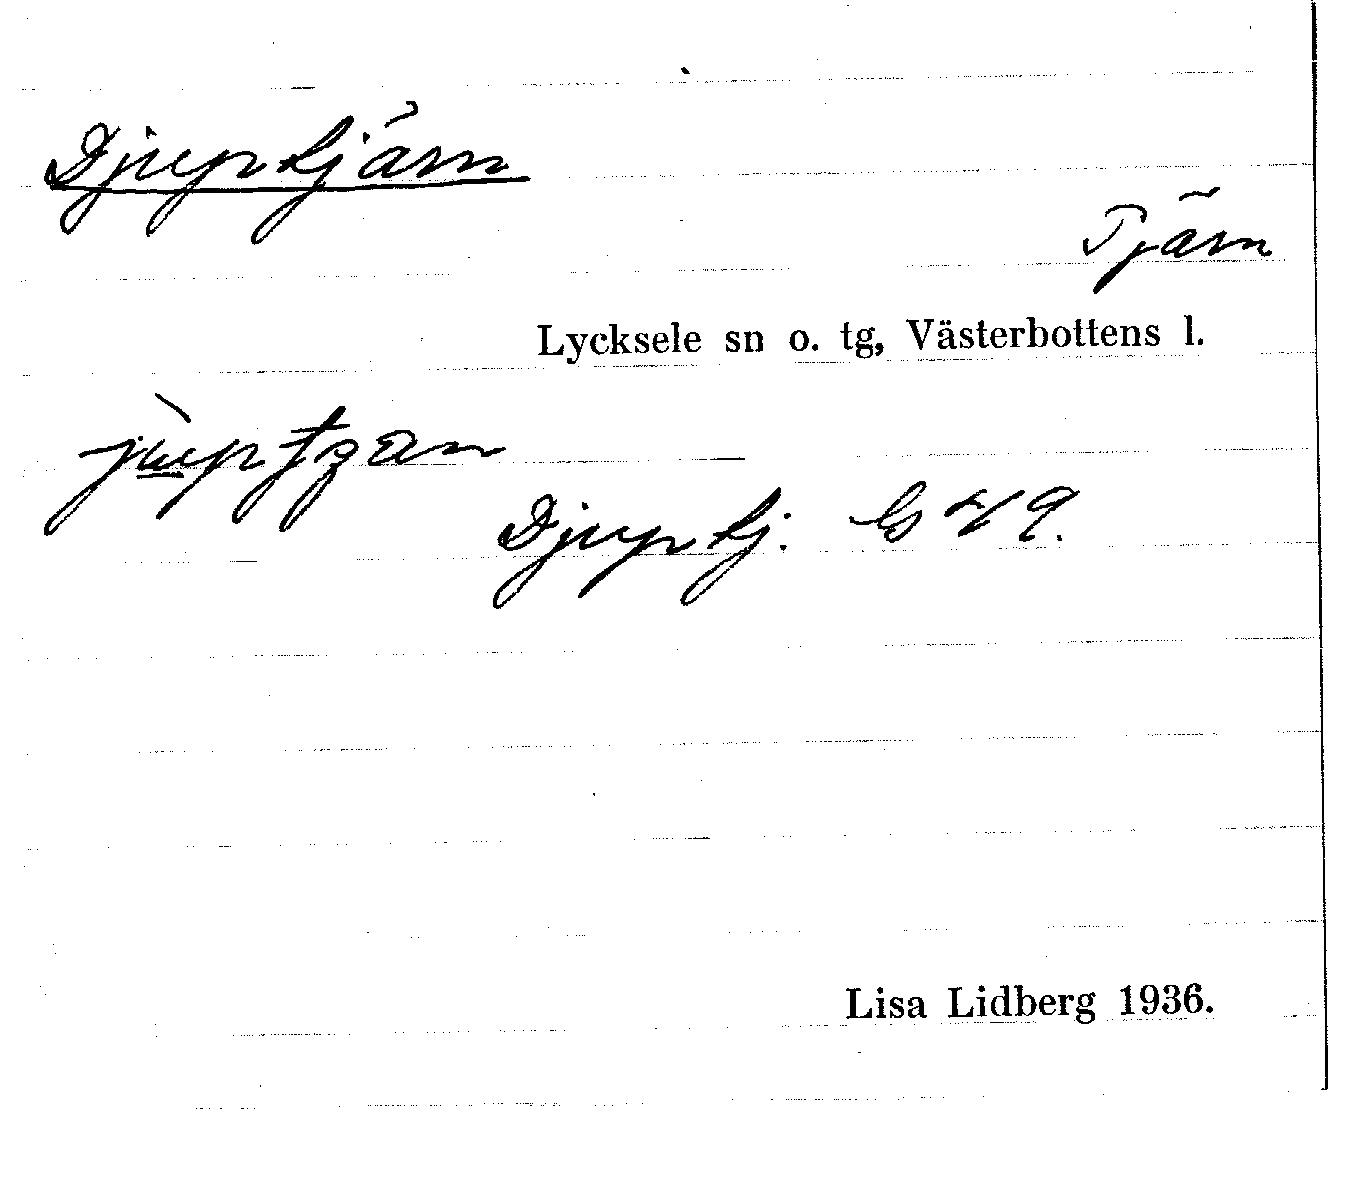 Djuptjärn
Tjärn
Lycksele sn o. tg, Västerbottens l.
Djuptj. G 49.
Lisa Lidberg 1936.